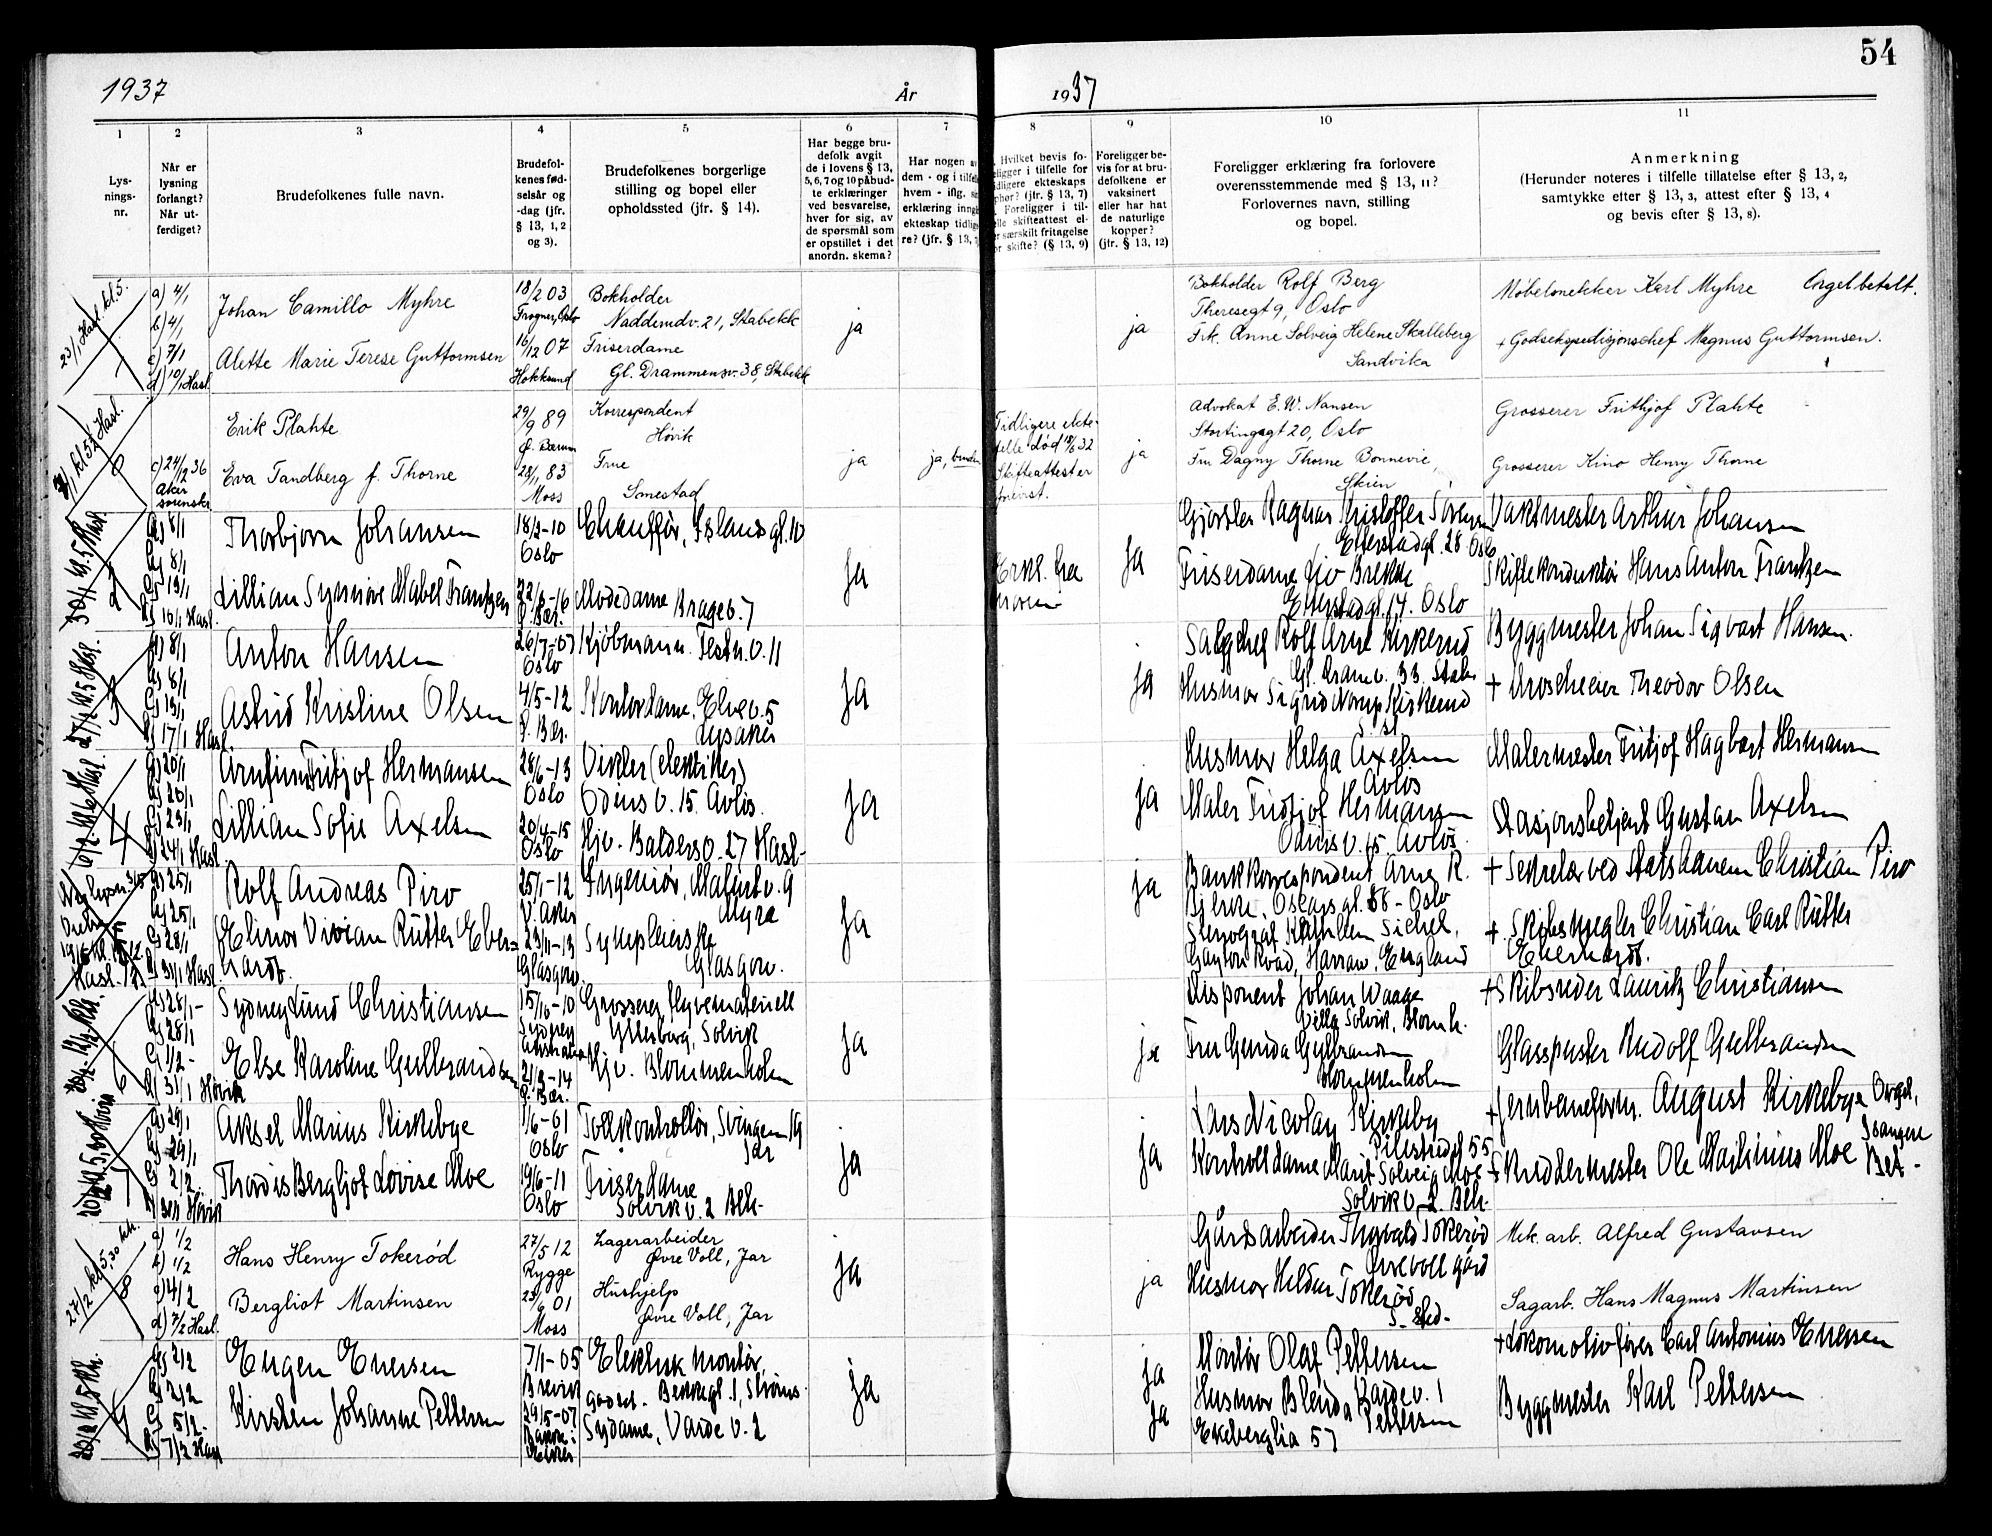 1937
År
1937
54
1
Lys-
nings-
nr.
2
Når er
lysning
forlangt?
Når ut-
ferdiget?
3
Brudefolkenes fulle navn.
4
Brudefol-
kenes fød-
selsår og
-dag (jfr.
§ 13, 1, 2
og 3).
5
Brudefolkenes borgerlige
stilling og bopel eller
opholdssted (jfr. § 14).
6
Har begge bru-
defolk avgit
de i lovens § 13,
5, 6, 7 og 10 påbud-
te erklæringer
ved besvarelse,
hver for sig, av
de spørsmål som
er opstillet i det
anordn. skema?
7
Har nogen
dem - og i tilfe
hvem - iflg.
erklæring inngå
ekteskap tidlig
re? (jfr. § 13,
8
Hvilket bevis fo-
eligger i tilfelle for
idligere ekteskaps
phør? (jfr. § 13, 7)
Foreligger i til-
elle skifteattest el-
er særskilt fritagelse
or skifte? (§ 13, 9)
9
Foreligger be-
vis for at bru-
defolkene er
vaksinert
eller har hat
de naturlige
kopper?
(jfr. § 13, 12)
10
Foreligger erklæring fra forlovere
overensstemmende med § 13, 11?
Forlovernes navn, stilling
og bopel.
11
Anmerkning
(Herunder noteres i tilfelle tillatelse efter § 13, 2,
samtykke efter § 13, 3, attest efter § 13, 4
og bevis efter § 13, 8).
23/1 Hasl. kl. 5.
1
a) 4/1
b) 4/1
c) 7/1
d) 10/1 Hasl.
Johan Camillo Myhre
Alette Marie Terese Guttormsen
18/2 03
Frogner, Oslo
16/12 07
Hokksund
Bokholder
Naddemdv. 21, Stabekk
Friserdame
Gl. Drammensv. 38, Stabekk
ja
ja
Bokholder Rolf Berg
Theresegt 9, Oslo
Frk. Anne Solveig Helene Skalleberg
Sandvika
Møbelsnekker Karl Myhre Orgel betalt.
+ Godsekspedisjonschef Magnus Guttormsen.
c) 24/2 36
Aker
sorenskr.
Erik Plahte
Eva Tandberg f. Thorne
29/9 89
Ø. Bærum
28/11 83
Moss
Korrespondent
Høvik
Frue
Smestad
ja
ja,
Tidligere ekte-
felle død 18/6 32
Skifteattest er
ja
Advokat E. W. Nansen
Stortingsgt 20, Oslo
Fru Dagny Thorne Bonnevie,
Skien
Grosserer Frithjof Plahte
Grosserer Kino Henry Thorne
30/1 kl. 5 Hasl.
2
a) 8/1
b) 8/1
c) 13/1
d) 10/1 Hasl.
Thorbjørn Johansen
Lillian Synnøve Mabel Frantzen
18/2-10
Oslo
Ø. Bær.
Chauffør, Islandsgt. 10
Motedame Bragev. 7
ja
ja
Gjørtler Ragnar Kristoffer Sørensen
Etterstadgt. 28 Oslo
Friserdame Liv Brekke
Etterstadgt. 14. Oslo
Vaktmester Arthur Johansen
Skiftekonduktør Hans Anton Frantzen
3
a) 8/1
b) 8/1
c) 13/1
d) 17/1 Hasl.
Anton Hansen
Astrid Kristine Olsen
26/7-07
Oslo
4/5-12
Ø. Bær.
Kjøbmann. Festn.v. 11
Kontordame. Elvev. 5
Lysaker
ja
ja
Salgchef Rolf Arne Kirkerud
Gl. Dramv. 33. Stab.
Husmor Sigrid Norup Kirkerud
S. st
Byggmester Johan Sigvart Hansen.
+ Droscheeier Theodor Olsen
6/2 kl. 6 Hasl.
4
a) 20/1
b) 20/1
c) 23/1
d) 24/1 Hasl.
Arnfinn Fritjof Hermansen
Lillian Sofie Axelsen
28/6-13
Oslo
20/4-15
Oslo
Vikler (elektriker)
Odins v. 15. Avløs.
Hjv. Baldersv. 27 Hasl-
ja
ja
Husmor Helga Axelsen
Avløs
Maler Fridtjof Hermansen
Odins v. 15 Avløs.
Malermester Fritjof Hagbart Hermansen
Stasjonsbetjent Gustav Axelsen
a) 25/1
b) 25/1
c) 28/1
d) 31/1 Hasl.
Rolf Andreas Piro
Elinor Vivian Rütter Eber-
hardt.
25/1-12
V. Aker
23/11-13
Glasgow.
Ingeniør,
Myra
Sykepleierske
Glasgow.
ja
ja
Bankkorrespondent Arne R.
Bjerke, Oscars gt. 88 - Oslo
Stenograf Kathleen Sichel,
Gayton Road, Harrow, England
+ Sekretær ved Statsbanen Christian Piro
+ Skibsmegler Christian Carl Rütter
Eberhardt.
6
a) 28/1-
b) 28/1
c) 1/2-
d) 31/1 Høvik
Sydney Lund Christiansen
Else Karoline Gulbrandsen
15/10-10
Sydney
Australia
21/3-14
Ø. Bær.
Grosserer, flyvemateriell
Ytterborg, Solvik
Hjv. Blommenholm
ja
ja
Disponent Johan Waage
Villa Solvik, Blomh.
Fru Gunda Gulbrandsen
Blommenholm
+ Skibsreder Lauritz Christiansen
Glasspuster Rudolf Gulbrandsen
7
a) 29/1
b) 29/1
c) 2/2.
d) 31/1 Høvik
Aksel Marius Kirkebye
Thordis Bergljot Lovise Moe
1/6-01
Oslo
19/6-11
Oslo
Tollkontrollør, Svingen 19
Jar
Friserdame
Solvik v. 2 Blh-
ja
ja
Lars Nicolay Kirkeby
Pilestredet 55
Kontordame Marit Solveig Moe
Solvik v. 2. Blh-
+ Jernbaneform. August Kirkebye Orgel,
Skreddermester Ole Martinius Moe Sangere
Bet-
27/2 kl. 5,30 hh.
8
a) 1/2
b) 1/2
c) 4/2
d) 7/2 Hasl.
Hans Henry Tokerød
Bergliot Martinsen
27/5 12
Rygge
01
Moss
Lagerarbeider
Øvre Voll, Jar
Hushjelp
Øvre Voll, Jar
ja
ja
Gårdsarbeider Thorvald Tokerød
Øvrevoll gård
Husmor Hildur Tokerød
S- sted-
Mek. arb. Alfred Gustavsen
Sagarb. Hans Magnus Martinsen
9
a) 2/2
b) 2/2
c) 5/2-
d) 7/2 Hasl
Eugen Evensen
Kirsten Johanne Pettersen
7/1-05
Brevik
29/5-07
Elektrisk montør,
Sydame, Varde v. 2
ja
ja
ja
Montør Olaf Pettersen
Varde v. 1
Husmor Blenda Pettersen
Ekeberglia 57
+ Lokomotivfører Carl Antonius Evensen
Byggmester Karl Pettersen